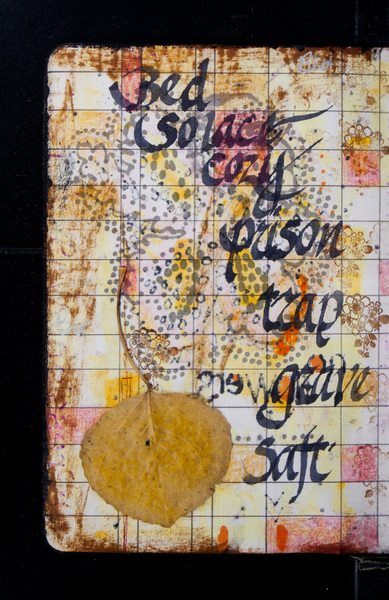 Bed
Solace
cozy
prison
trap
grave
saft